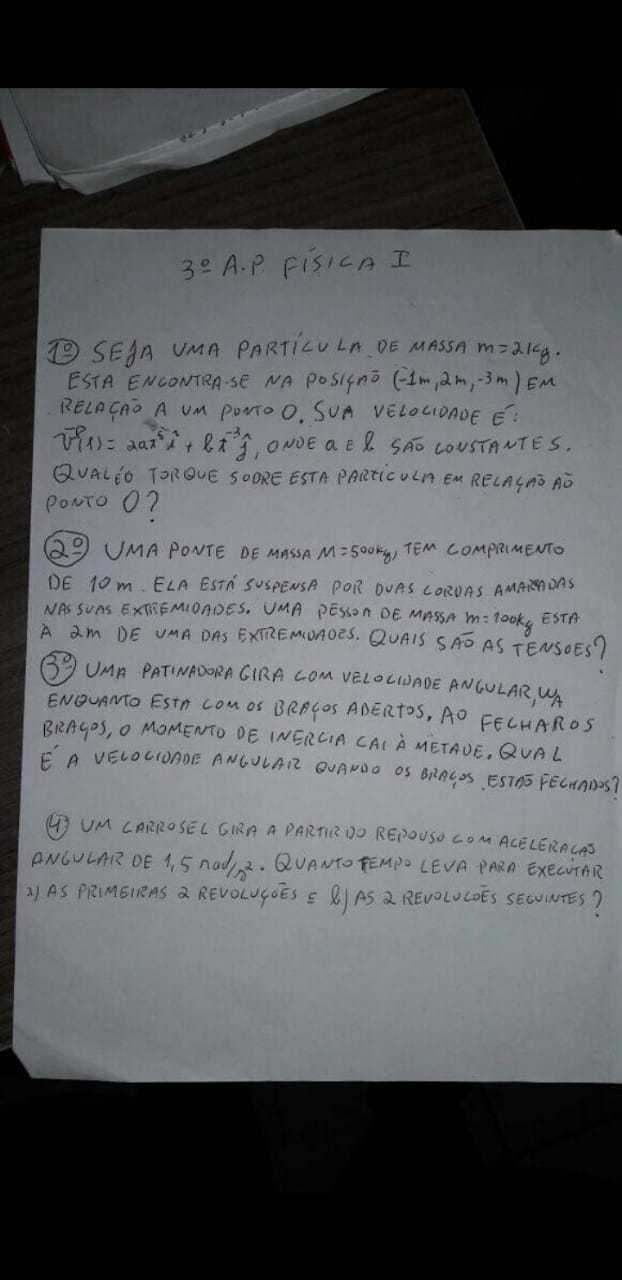 3º A.P. FÍSICA I
1º SEJA UMA PARTÍCULA DE MASSA m=2kg.
ESTA ENCONTRA-SE NA POSIÇÃO (-1m, 2m, -3m) EM
RELAÇÃO A UM PONTO O. SUA VELOCIDADE É:
V(t) = 2at⁵î + bt⁻³ĵ, ONDE a E b SÃO CONSTANTES.
QUAL É O TORQUE SOBRE ESTA PARTÍCULA EM RELAÇÃO AO
PONTO O?
2º UMA PONTE DE MASSA M=500kg, TEM COMPRIMENTO
DE 10m. ELA ESTÁ SUSPENSA POR DUAS CORDAS AMARRADAS
NAS SUAS EXTREMIDADES. UMA PESSOA DE MASSA m=100kg ESTA
A 2m DE UMA DAS EXTREMIDADES. QUAIS SÃO AS TENSOES?
3º UMA PATINADORA GIRA COM VELOCIDADE ANGULAR, WA
ENQUANTO ESTA COM OS BRAÇOS ABERTOS. AO FECHAR OS
BRAÇOS, O MOMENTO DE INERCIA CAI À METADE. QUAL
É A VELOCIDADE ANGULAR QUANDO OS BRAÇOS ESTÃO FECHADOS?
4) UM CARROSEL GIRA A PARTIR DO REPOUSO COM ACELERACAO
ANGULAR DE 1,5 rad/s². QUANTO TEMPO LEVA PARA EXECUTAR
a) AS PRIMEIRAS 2 REVOLUÇÕES E b) AS 2 REVOLUCÕES SEGUINTES?